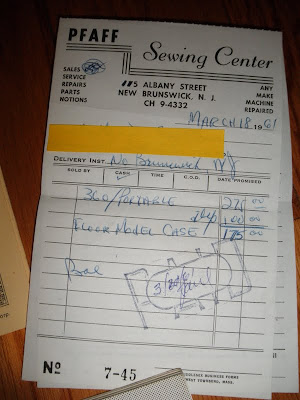 PFAFF
Sewing Center
SALES
SERVICE
REPAIRS
PARTS
NOTIONS
115 ALBANY STREET
NEW BRUNSWICK, N. J.
CH 9-4332
ANY
MAKE
MACHINE
REPAIRED
MARCH 18 1961
DELIVERY INST. No Brunswick NJ
SOLD BY CASH TIME C.O.D. DATE PROMISED
360/PORTABLE 275 00
dep 100 00
FLOOR MODEL CASE 175 00
Bal
No 7-45
BUSINESS FORMS
WEST TOWNSEND, MASS.